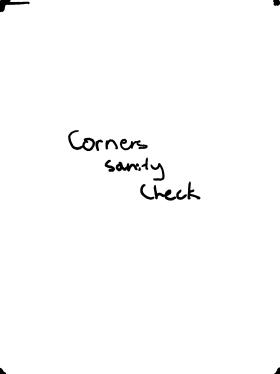 Corners
sanity
Check